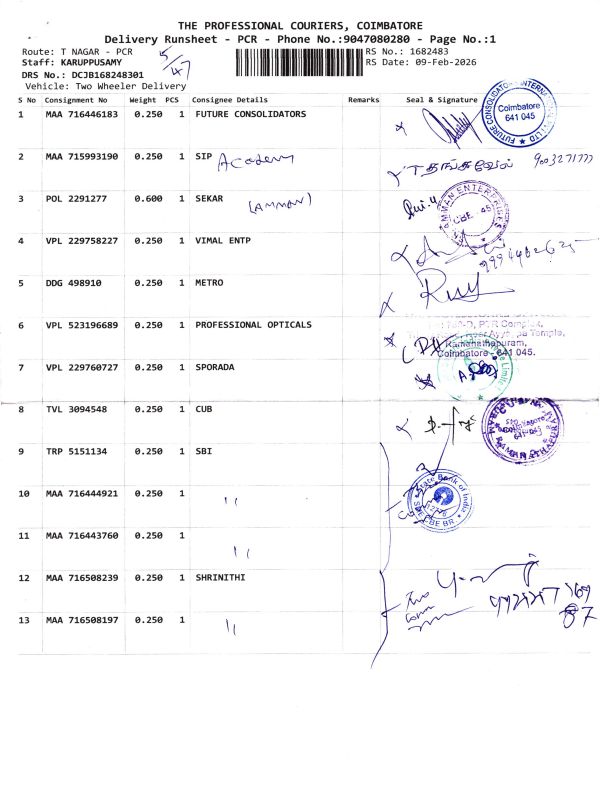 THE PROFESSIONAL COURIERS, COIMBATORE
Delivery Runsheet - PCR - Phone No.:9047080280 - Page No.:1
Route: T NAGAR - PCR
RS No.: 1682483
Staff: KARUPPUSAMY
RS Date: 09-Feb-2026
DRS No.: DCJB168248301
5/47
Vehicle: Two Wheeler Delivery
S No Consignment No Weight PCS Consignee Details Remarks Seal & Signature
1 MAA 716446183 0.250 1 FUTURE CONSOLIDATORS
Coimbatore
641 045
2 MAA 715993190 0.250 1 SIP Academy
T தங்கவேல் 9003271777
3 POL 2291277 0.600 1 SEKAR (AMMAN)
AMMAN ENTERPRISES
CBE - 45
4 VPL 229758227 0.250 1 VIMAL ENTP
5 DDG 498910 0.250 1 METRO
6 VPL 523196689 0.250 1 PROFESSIONAL OPTICALS
Ramanathapuram,
Coimbatore - 641 045.
7 VPL 229760727 0.250 1 SPORADA
8 TVL 3094548 0.250 1 CUB
9 TRP 5151134 0.250 1 SBI
10 MAA 716444921 0.250 1 "
State Bank of India
CBE BR.
11 MAA 716443760 0.250 1 "
12 MAA 716508239 0.250 1 SHRINITHI
13 MAA 716508197 0.250 1 "